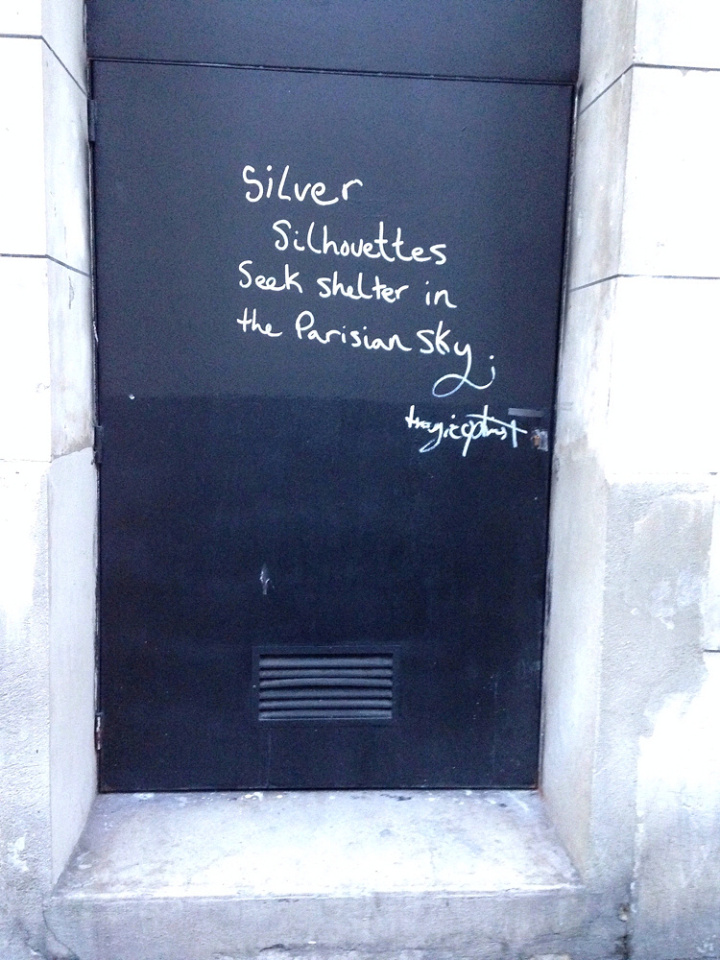 Silver
Silhouettes
Seek shelter in
the Parisian Sky.